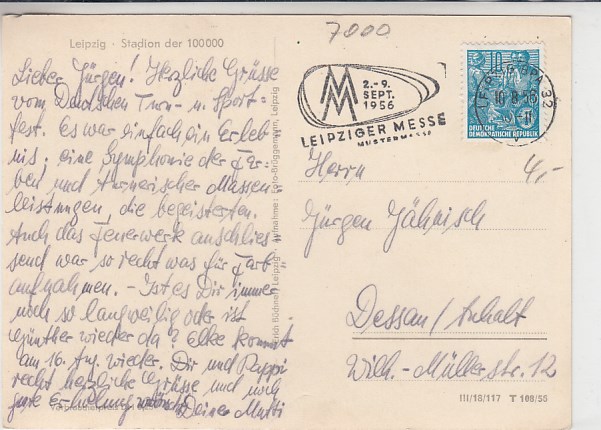 7000
Leipzig · Stadion der 100000
Lieber Jürgen! Herzliche Grüsse
vom Deutschen Turn- u. Sport-
fest. Es war einfach ein Erleb-
nis. eine Symphonie der Far-
ben und turnerischer Massen-
leistungen, die begeisterten.
Auch das Feuerwerk anschlies-
send war so recht was für „Farb"
aufnahmen. – Ist es Dir immer
noch so langweilig oder ist
Günther wieder da? Elke kommt
am 16. Aug. wieder. Dir und Pappi
recht herzliche Grüsse und noch
gute Erholung wünscht Deine Mutti
Aufnahme: Foto-Brüggemann, Leipzig
MM
2.-9.
SEPT.
1956
LEIPZIGER MESSE
MUSTERMESSE
10
DEUTSCHE
DEMOKRATISCHE REPUBLIK
LEIPZIG BPA 32
10.8.56
Herrn
4,-
Jürgen Jähnisch
Dessau/Anhalt
Wilh.-Müllerstr. 12
III/18/117 T 109/55